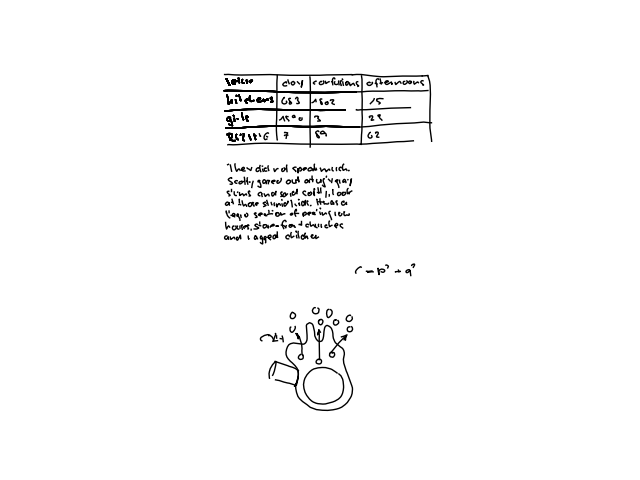 day confusions afternoons
kitchens 683 1802 15
girls 3
7 89 62
They did not speak much.
Scotty gazed out at
slums and said coldly, Look
at those stupid kids. It was a
Negro section of peeling row
houses, store-front churches
and ragged children